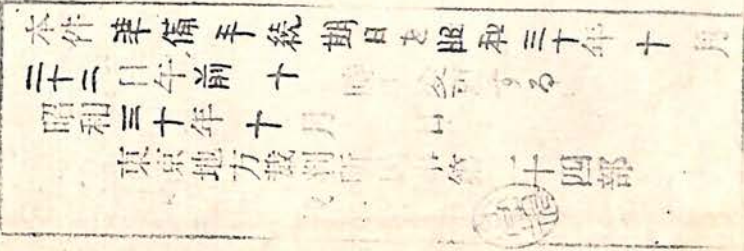 本件準備手続期日を昭和三十年十月
二十二日午前十時に変更する
昭和三十年十月 日
東京地方裁判所 第二十四部